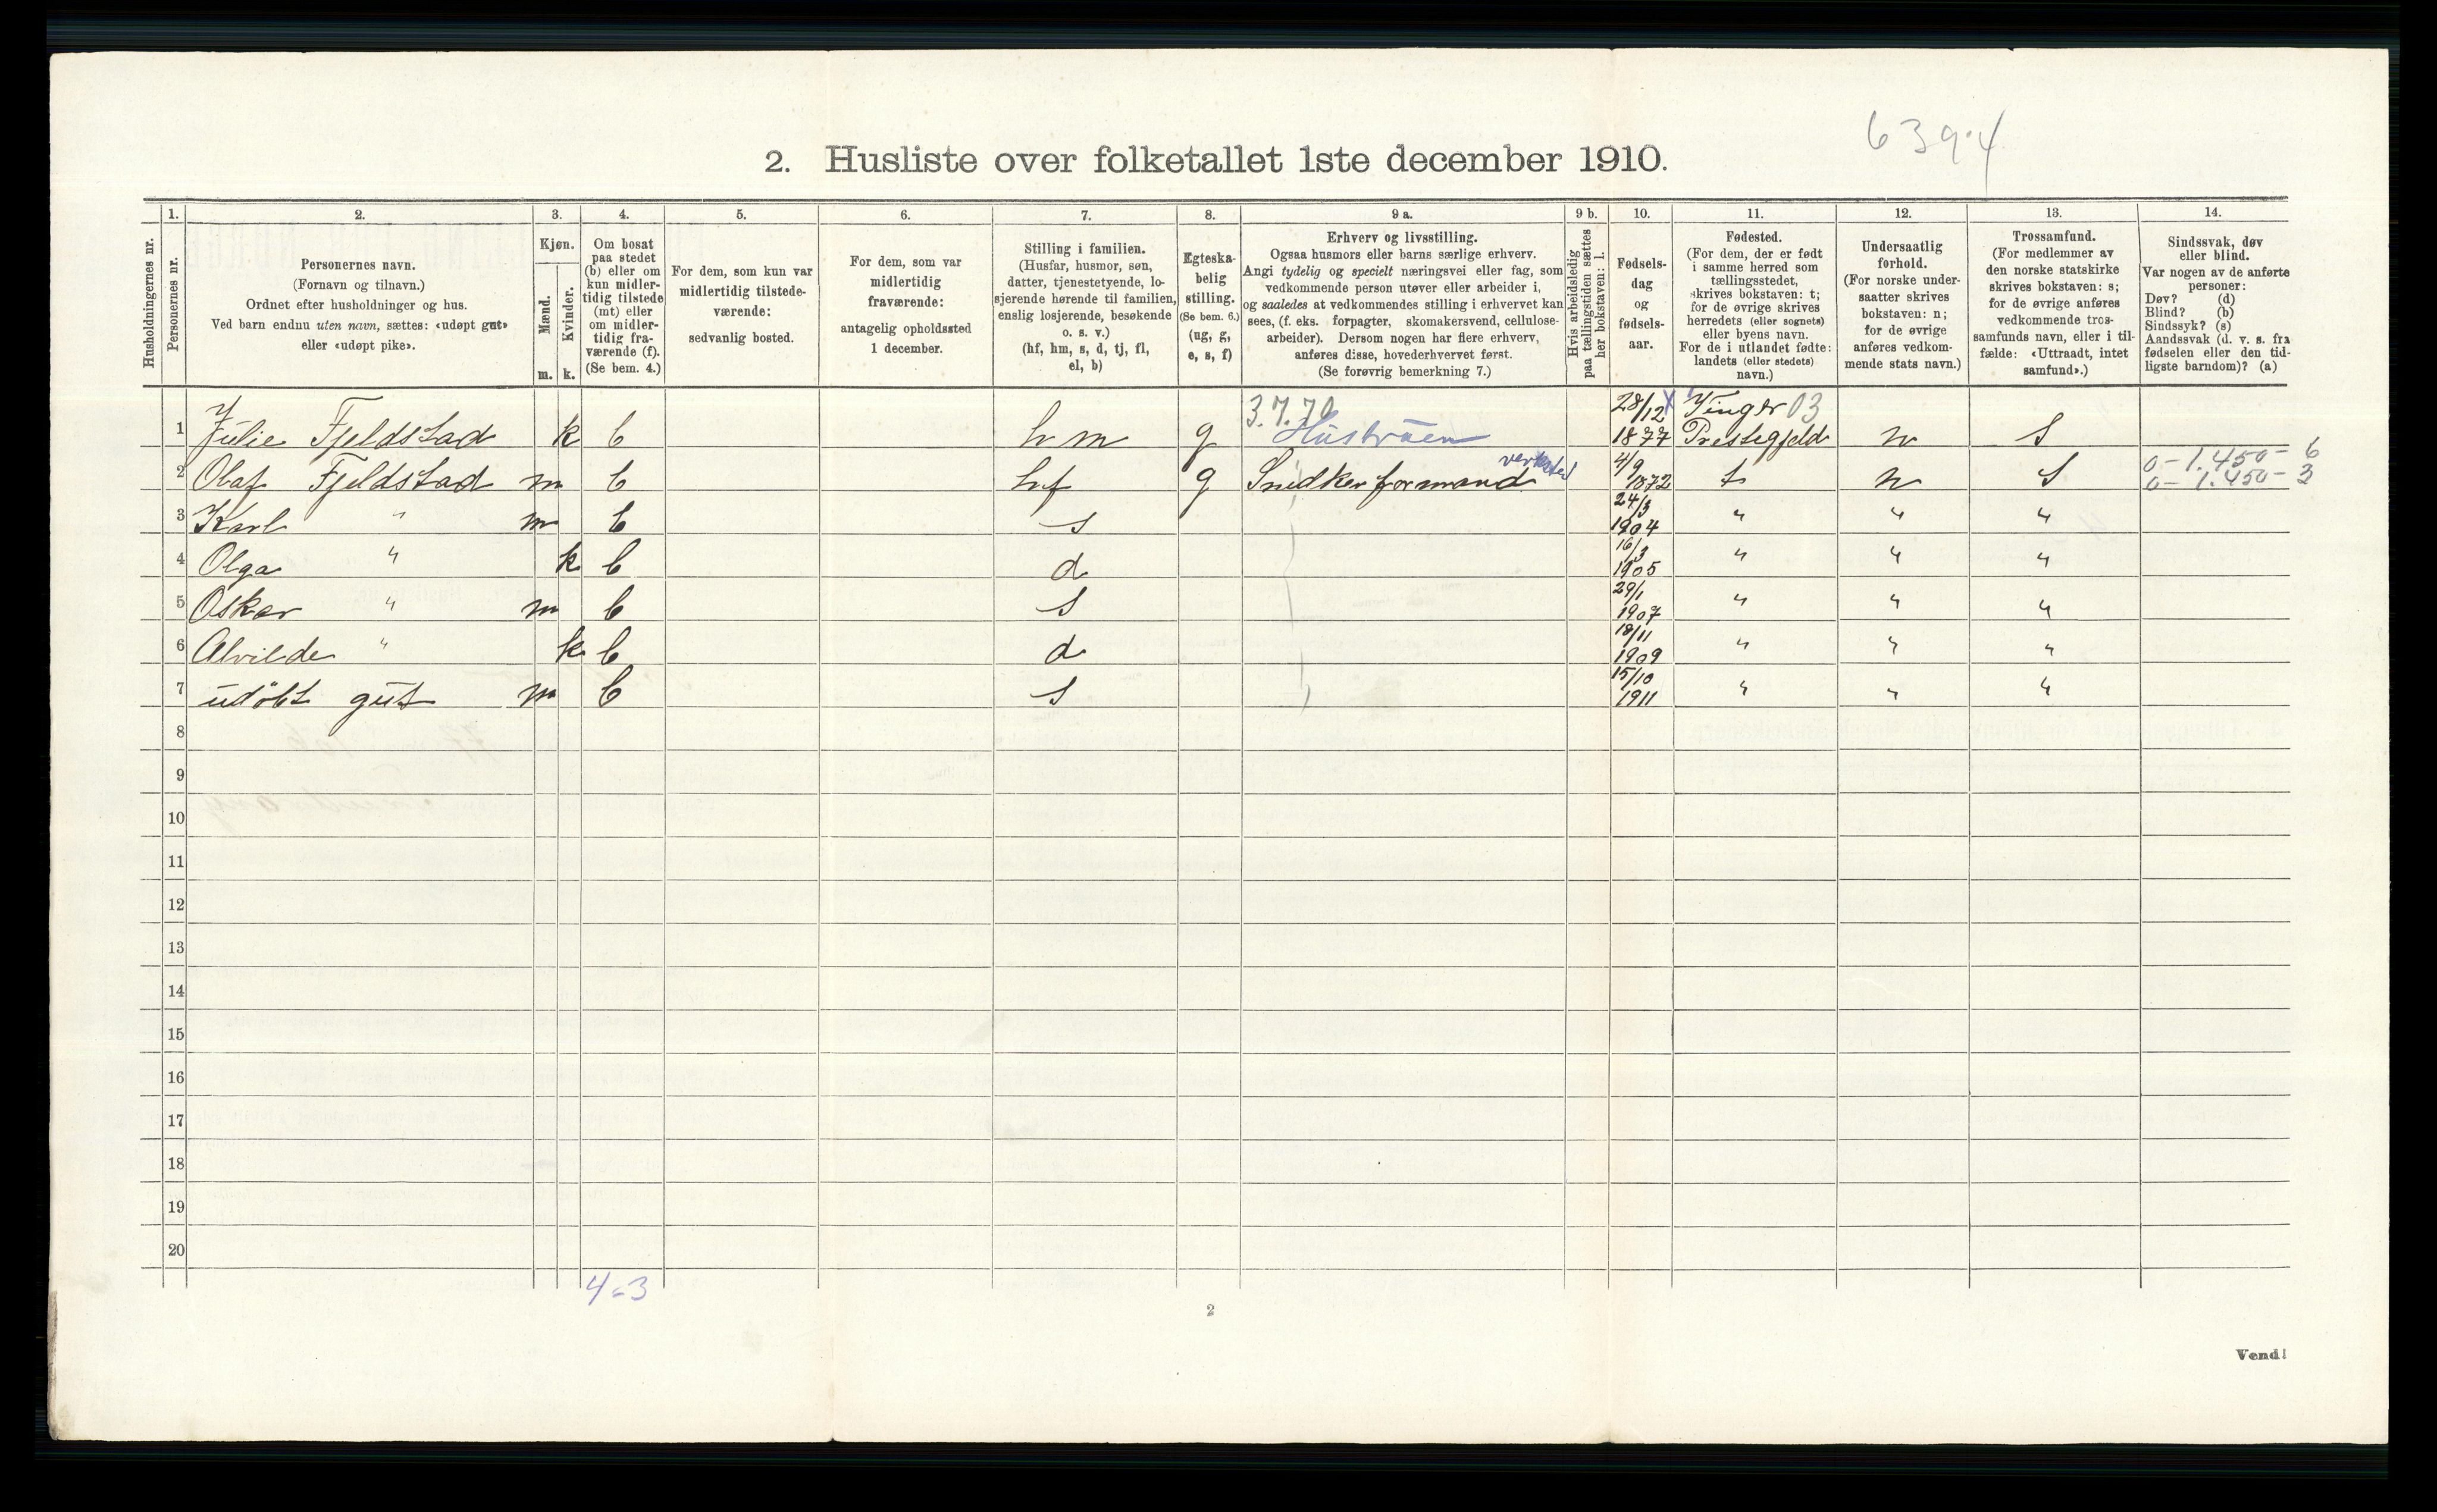 6394
2. Husliste over folketallet 1ste december 1910.
Husholdningernes nr.
1.
Personernes nr.
2.
Personernes navn.
(Fornavn og tilnavn.)
Ordnet efter husholdninger og hus.
Ved barn endnu uten navn, sættes: «udøpt gut»
eller «udøpt pike».
3.
Kjøn.
Mænd.
Kvinder.
m. k.
4.
Om bosat
paa stedet
(b) eller om
kun midler-
tidig tilstede
(mt) eller
om midler-
tidig fra-
værende (f).
(Se bem. 4.)
5.
For dem, som kun var
midlertidig tilstede-
værende:
sedvanlig bosted.
6.
For dem, som var
midlertidig
fraværende:
antagelig opholdssted
1 december.
7.
Stilling i familien.
(Husfar, husmor, søn,
datter, tjenestetyende, lo-
sjerende hørende til familien,
enslig losjerende, besøkende
o. s. v.)
(hf, hm, s, d, tj, fl,
el, b)
8.
Egteska-
belig
stilling.
(Se bem. 6.)
(ug, g,
e, s, f)
9 a.
Erhverv og livsstilling.
Ogsaa husmors eller barns særlige erhverv.
Angi tydelig og specielt næringsvei eller fag, som
vedkommende person utøver eller arbeider i,
og saaledes at vedkommendes stilling i erhvervet kan
sees, (f. eks. forpagter, skomakersvend, cellulose-
arbeider). Dersom nogen har flere erhverv,
anføres disse, hovederhvervet først.
(Se forøvrig bemerkning 7.)
9 b.
Hvis arbeidsledig
paa tællingstiden sættes
her bokstaven: l.
10.
Fødsels-
dag
og
fødsels-
aar.
11.
Fødested.
(For dem, der er født
i samme herred som
tællingsstedet,
skrives bokstaven: t;
for de øvrige skrives
herredets (eller sognets)
eller byens navn.
For de i utlandet fødte:
landets (eller stedets)
navn.)
12.
Undersaatlig
forhold.
(For norske under-
saatter skrives
bokstaven: n;
for de øvrige
anføres vedkom-
mende stats navn.)
13.
Trossamfund.
(For medlemmer av
den norske statskirke
skrives bokstaven: s;
for de øvrige anføres
vedkommende tros-
samfunds navn, eller i til-
fælde: «Uttraadt, intet
samfund».)
14.
Sindssvak, døv
eller blind.
Var nogen av de anførte
personer:
Døv? (d)
Blind? (b)
Sindssyk? (s)
Aandssvak (d. v. s. fra
fødselen eller den tid-
ligste barndom)? (a)
3.7.70 28/12 Vinger 03
1 Julie Fjeldstad k b hm g Hustruen 1877 Prestegjeld n s
verksted 0-1.450-6
2 Olaf Fjeldstad m b hf g Snedker formand 4/9 1872 t n s 0-1.450-3
3 Karl " m b s 24/3 1904 " " "
4 Olga " k b d 16/3 1905 " " "
5 Oskar " m b s 29/1 1907 " " "
6 Alvilde " k b d 18/11 1909 " " "
7 udöbt gut m b s 15/10 1911 " " "
8
9
10
11
12
13
14
15
16
17
18
19
20
4-3
2
Vend!